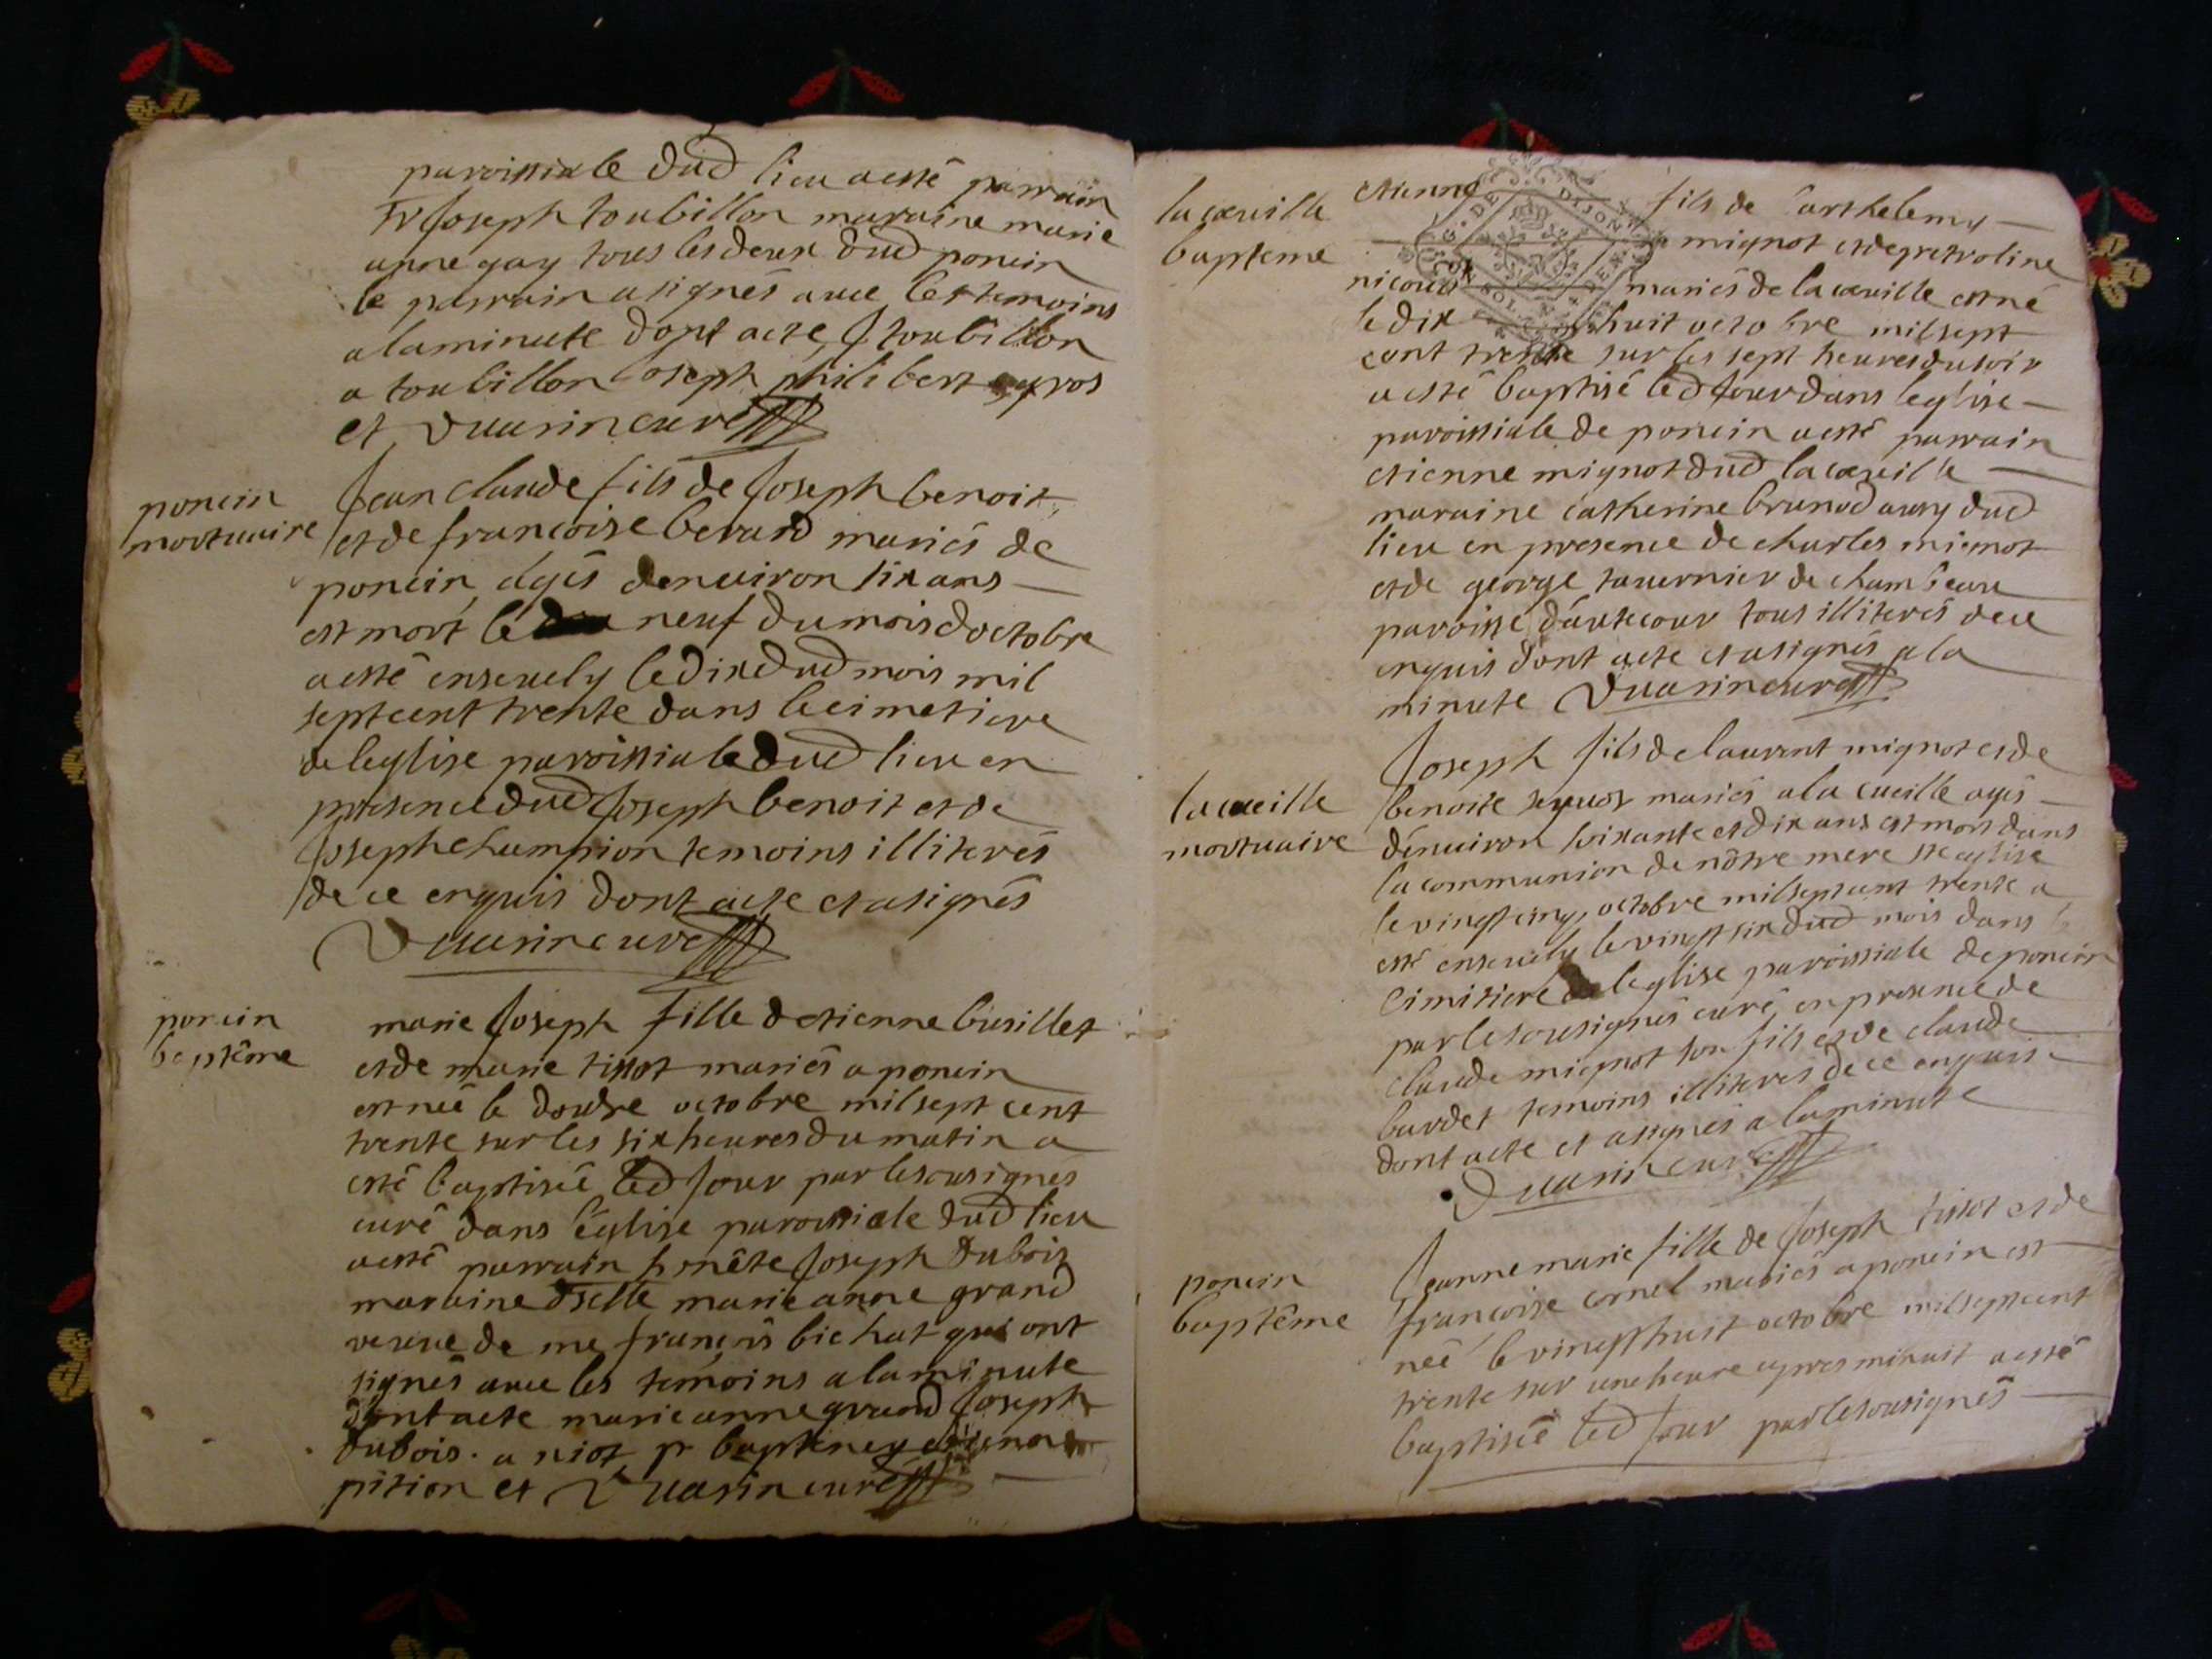 paroissiale dud lieu a esté parrain
sr Joseph toubillon maraine marie
anne gay tous les deux dud poncin
le parrain a signés avec les temoins
a la minute dont acte J toubillon
a toubillon Joseph philibert gros
et Duarin curé
poncin
mortuaire
Jean claude fils de Joseph benoit
et de francoise berard mariés de
poncin agés denuiron six ans
est mort le neuf du mois doctobre
a esté enseuely le dix dud mois mil
sept cent trente dans le cimetiere
de leglise paroissiale dud lieu en
presence dud Joseph benoit et de
Joseph champion temoins illiterés
de ce enquis dont acte et a signés
Duarin curé
poncin
baptême
marie Joseph fille detienne busillet
et de marie tissot mariés a poncin
est née le douze octobre mil sept cent
trente sur les six heures du matin a
esté baptisée led Jour par le sousignes
curé dans l'église paroissiale dud lieu
a esté parrain honête Joseph Dubois
maraine dselle marie anne grand
veuue de me francois bichat qui ont
signés auec les temoins a la minute
dont acte marie anne grand Joseph
Dubois . a niot p
pition et Duarin curé
la cueille
bapteme
etienne fils de barthelemy
mignot et de petroline
nicoud mariés de la cueille est né
le dix huit octobre mil sept
cent trente sur les sept heures du soir
a esté baptisé led Jour dans leglise
paroissiale de poncin a esté parrain
etienne mignot dud la cueille
maraine catherine brunod aussy dud
lieu en presence de charles mignot
et de george tauernier de chambeau
paroisse d'autecour tous illiterés de ce
enquis dont acte et a signés a la
minute Duarin curé
la cueille
mortuaire
Joseph fils de laurent mignot et de
benoite mariés a la cueille agés
dénuiron soixante et dix ans est mort dans
la communion de nôtre mere ste eglise
le vingt cinq octobre mil sept cent trente a
esté enseuely le vingt six dud mois dans le
cimitiere de leglise paroissiale de poncin
par le sousignés curé en presence de
claude mignot son fils et de claude
burdet temoins illiterés de ce enquis
dont acte et a signés a la minute
Duarin curé
poncin
baptême
Jeanne marie fille de Joseph tissot et de
francoise cornel mariés a poncin est
née le vingt huit octobre mil sept cent
trente sur une heure apres minuit a esté
baptisée led Jour par le sousignés